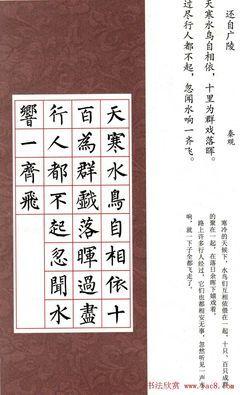 还自广陵
天寒水鸟自相依，十里为群戏落晖。
过尽行人都不起，忽闻水响一齐飞。
秦观
寒冷的天候下，水鸟们互相依偎在一起，十只、百只成群
的聚在一起，在落日余晖下嬉戏着。
路上许多行人经过，它们也都相安无事，忽然听见一声水
响，就一下子全都飞走了。
天寒水鳥自相依十
百為群戲落暉過盡
行人都不起忽聞水
響一齊飛
书法欣赏